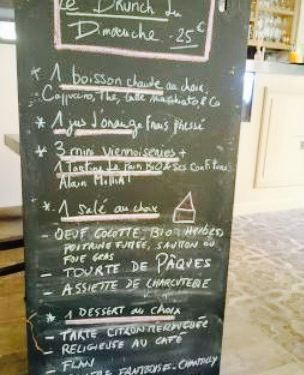 Le Brunch du
Dimanche - 25€
* 1 boisson chaude au choix
Cappucino, Thé, Latte Macchiato &
* 1 jus d'orange frais pressé
* 3 mini Viennoiseries +
1 Tartine de Pain BIO & ses confitures
Alain Milliat
* 1 salé au choix
- OEUF COCOTTE BIO HERBES,
POITRINE FUMÉE, SAUMON OU
FOIE GRAS
- TOURTE DE PÂQUES
- ASSIETTE DE CHARCUTERIE
* 1 DESSERT au choix
- TARTE CITRON MERINGUÉE
- RELIGIEUSE AU CAFÉ
- FLAN
- CHANTILLY